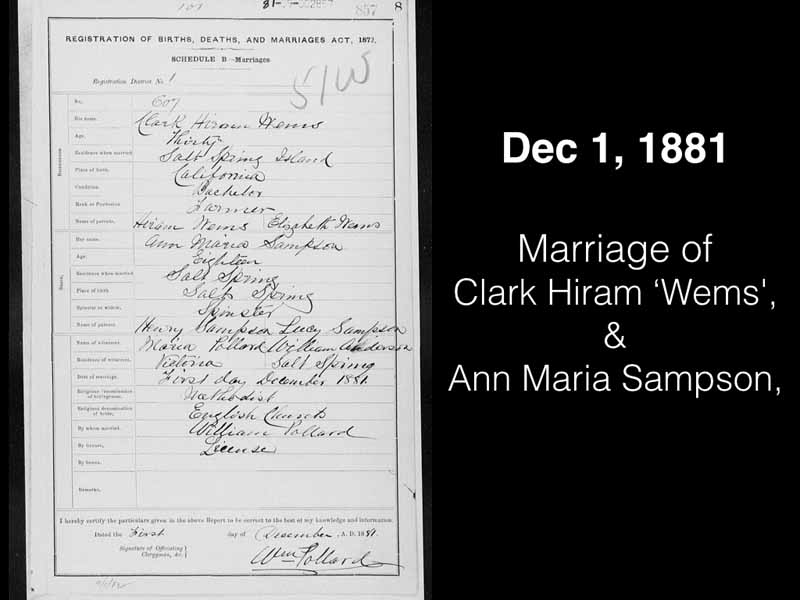 101 81-09-002857 857 8
REGISTRATION OF BIRTHS, DEATHS, AND MARRIAGES ACT, 1872.
SCHEDULE B—Marriages
Registration District No. 1
51W
No. 607
His name. Clark Hiram Wems
Age. Thirty
Residence when married Salt Spring Island
Place of birth. California
Condition. Bachelor
Rank or Profession Farmer
Name of parents. Hiram Wems Elizabeth Wems
Her name. Ann Maria Sampson
Age. Eighteen
Residence when married Salt Spring
Place of birth Salt Spring
Spinster or widow. Spinster
Name of parents. Henry Sampson Lucy Sampson
Name of witnesses. Maria Pollard William Anderson
Residence of witnesses. Victoria Salt Spring
Date of marriage. First day December 1881.
Religious denomination of bridegroom. Methodist
Religious denomination of bride. English Church
By whom married. William Pollard
By license. License
By banns.
Remarks.
I hereby certify the particulars given in the above Report to be correct to the best of my knowledge and information.
Dated the First day of December, A. D. 1881.
Signature of Officiating Clergyman, &c. Wm Pollard
Dec 1, 1881
Marriage of
Clark Hiram ‘Wems',
&
Ann Maria Sampson,